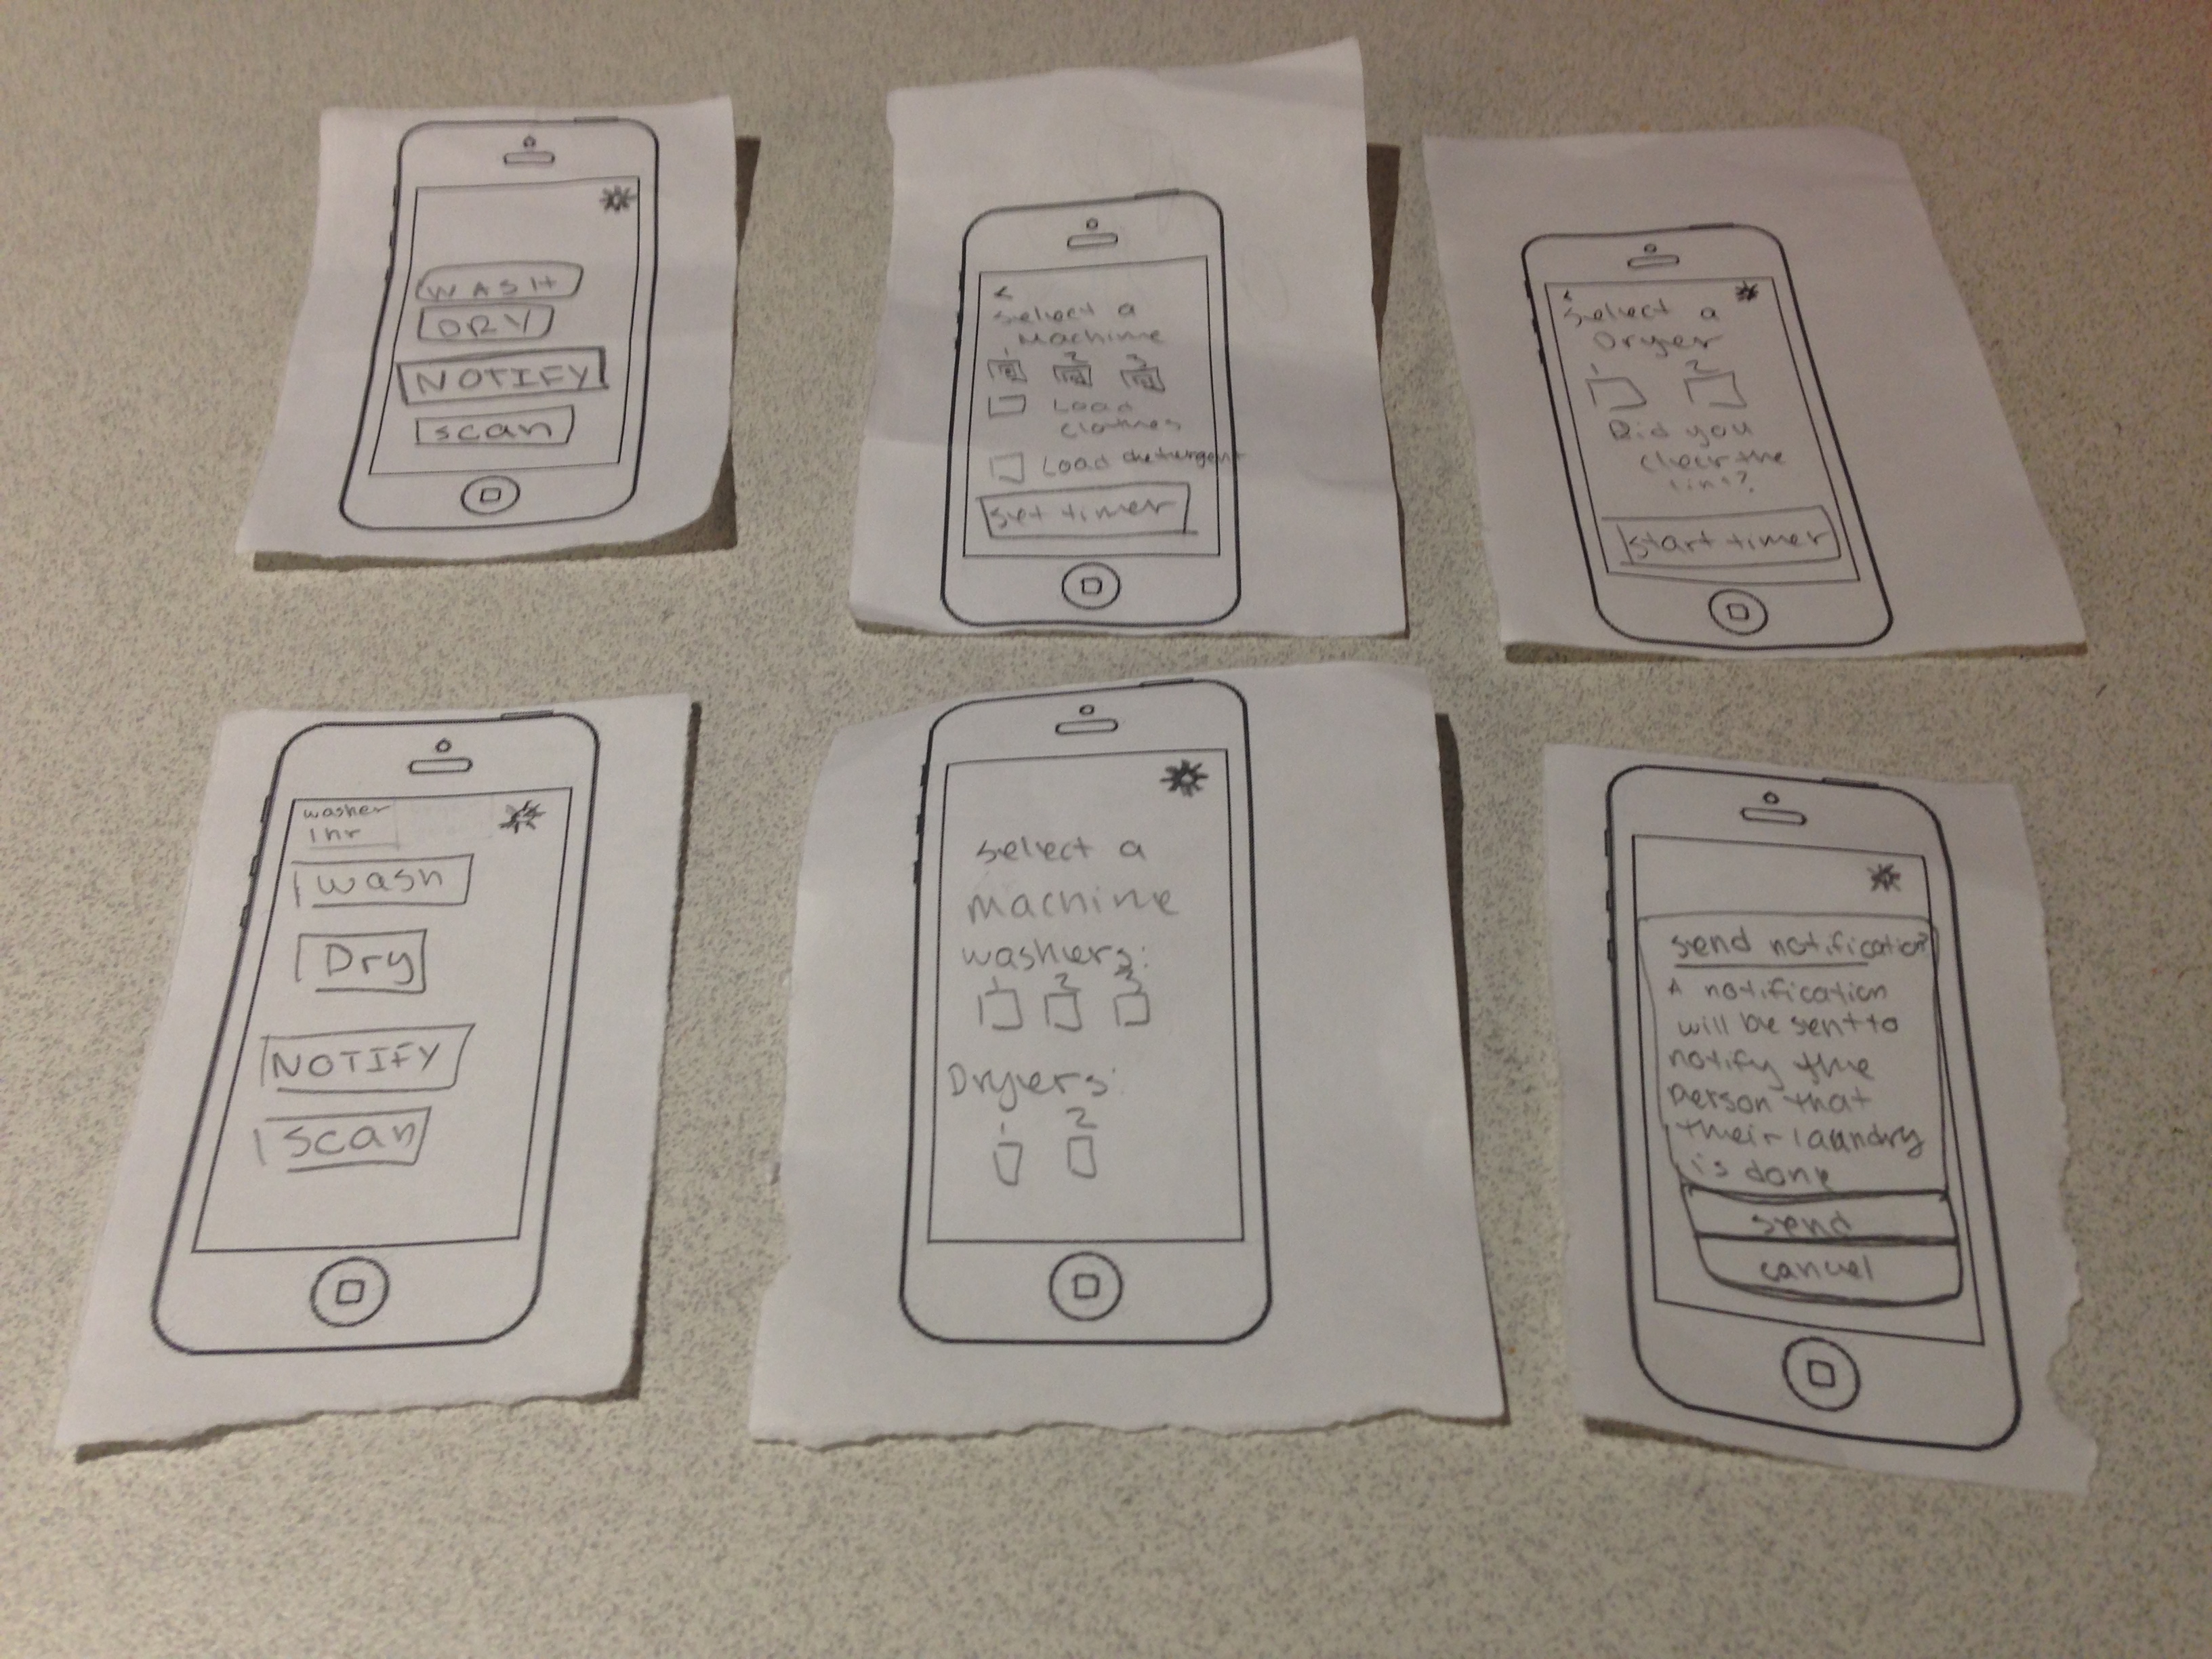 WASH
DRY
NOTIFY
scan
<
Select a
Machine
1 2 3
Load
clothes
Load detergent
set timer
<
Select a
Dryer
1 2
Did you
clear the
lint?
start timer
washer
1 hr
wash
Dry
NOTIFY
scan
select a
Machine
washers:
1 2 3
Dryers:
1 2
send notification?
A notification
will be sent to
notify the
person that
their laundry
is done
send
cancel